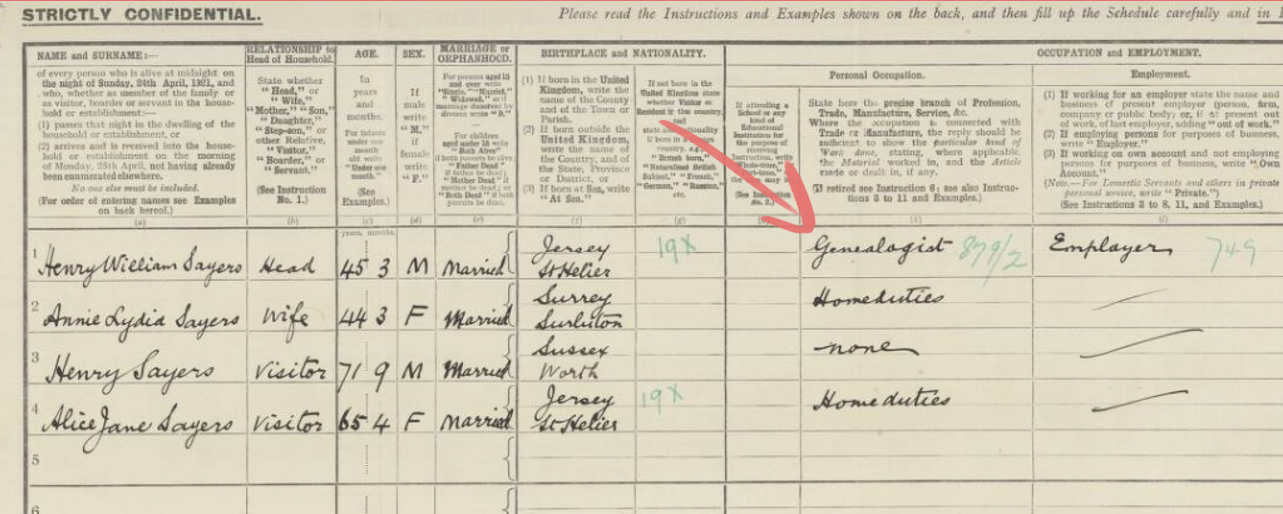 STRICTLY CONFIDENTIAL.
Please read the Instructions and Examples shown on the back, and then fill up the Schedule carefully and in
NAME and SURNAME:—
of every person who is alive at midnight on
the night of Sunday, 24th April, 1921, and
who, whether as member of the family or
as visitor, boarder or servant in the house-
hold or establishment:—
(1) passes that night in the dwelling of the
household or establishment, or
(2) arrives and is received into the house-
hold or establishment on the morning
of Monday, 25th April, not having already
been enumerated elsewhere.
No one else must be included.
(For order of entering names see Examples
on back hereof.)
(a)
RELATIONSHIP to
Head of Household.
State whether
"Head," or
"Wife,"
"Mother," "Son,"
"Daughter,"
"Step-son," or
other Relative,
"Visitor,"
"Boarder," or
"Servant."
(See Instruction
No. 1.)
(b)
AGE.
In
years
and
months.
For infants
under one
month
old write
"Under one
month."
(See
Examples.)
(c)
years. months.
SEX.
If
male
write
"M."
if
female
write
"F."
(d)
MARRIAGE or
ORPHANHOOD.
For persons aged 15
and over write
"Single," "Married,"
"Widowed," or if
marriage dissolved by
divorce write "D."
For children
aged under 15 write
"Both Alive"
if both parents be alive;
"Father Dead" if
father be dead;
"Mother Dead" if
mother be dead; or
"Both Dead" if both
parents be dead.
(e)
BIRTHPLACE and NATIONALITY.
(1) If born in the United
Kingdom, write the
name of the County
and of the Town or
Parish.
(2) If born outside the
United Kingdom,
write the name of
the Country, and of
the State, Province
or District, or
(3) If born at Sea, write
"At Sea."
(f)
If not born in the
United Kingdom state
whether Visitor or
Resident in this country,
and
state
If born in a
country, e.g.
"British born,"
"Naturalised British
Subject," "French,"
"German," "Russian,"
etc.
(g)
If attending a
School or any
kind of
Educational
Institution for
the purpose of
receiving
Instruction, write
(See Instruction
No. 2.)
OCCUPATION and EMPLOYMENT.
Personal Occupation.
State here the precise branch of Profession,
Trade, Manufacture, Service, &c.
Where the occupation is connected with
Trade or Manufacture, the reply should be
sufficient to show the particular kind of
Work done, stating, where applicable,
the Material worked in, and the Article
made or dealt in, if any.
(If retired see Instruction 6; see also Instruc-
tions 3 to 11 and Examples.)
Employment.
(1) If working for an employer state the name and
business of present employer (person, firm,
company or public body; or, if at present out
of work, of last employer, adding "out of work."
(2) If employing persons for purposes of business
write "Employer."
(3) If working on own account and not employing
persons for purposes of business, write "Own
Account."
(Note.—For Domestic Servants and others in private
personal service, write "Private.")
(See Instructions 3 to 8, 11, and Examples.)
1 Henry William Sayers Head 45 3 M Married Jersey St Helier 19X Genealogist 879/2 Employer 749
2 Annie Lydia Sayers Wife 44 3 F Married Surrey Surbiton Home duties
3 Henry Sayers Visitor 71 9 M Married Sussex Worth none
4 Alice Jane Sayers Visitor 65 4 F Married Jersey St Helier 19X Home duties
5
6